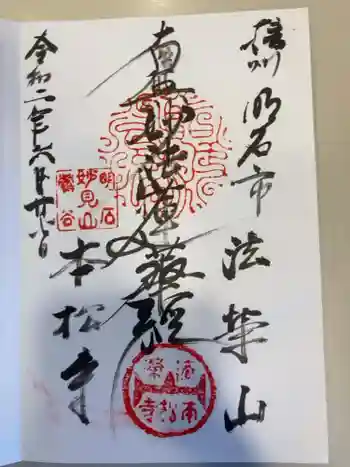 播州 明石市 法華山
南無妙法蓮華経
本松寺
令和二年六月廿八日
明石
妙見山
鶴谷